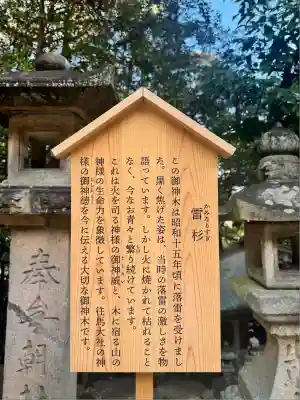 雷杉
かみなりすぎ
この御神木は昭和十五年頃に落雷を受けまし
た。黒く焦げた姿は、当時の落雷の激しさを物
語っています。しかし火に焼かれて枯れること
なく、今なお青々と繁り続けています。
これは火を司る神様の御神威と、木に宿る山の
神様の生命力を象徴しています。往馬大社の神
様の御神徳を今に伝える大切な御神木です。
奉
朝